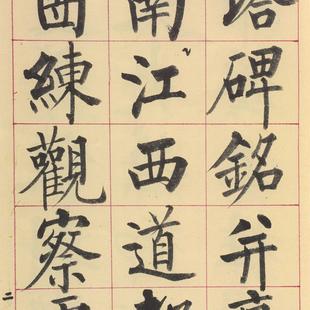 塔碑銘并序
南江西道都
西練觀察
二